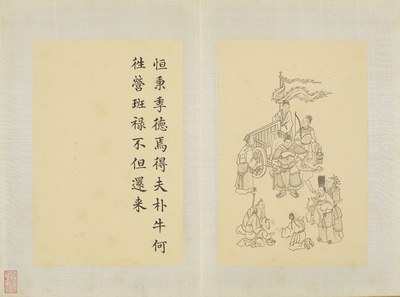 恒秉季德焉得夫朴牛何
徃營班祿不但還来